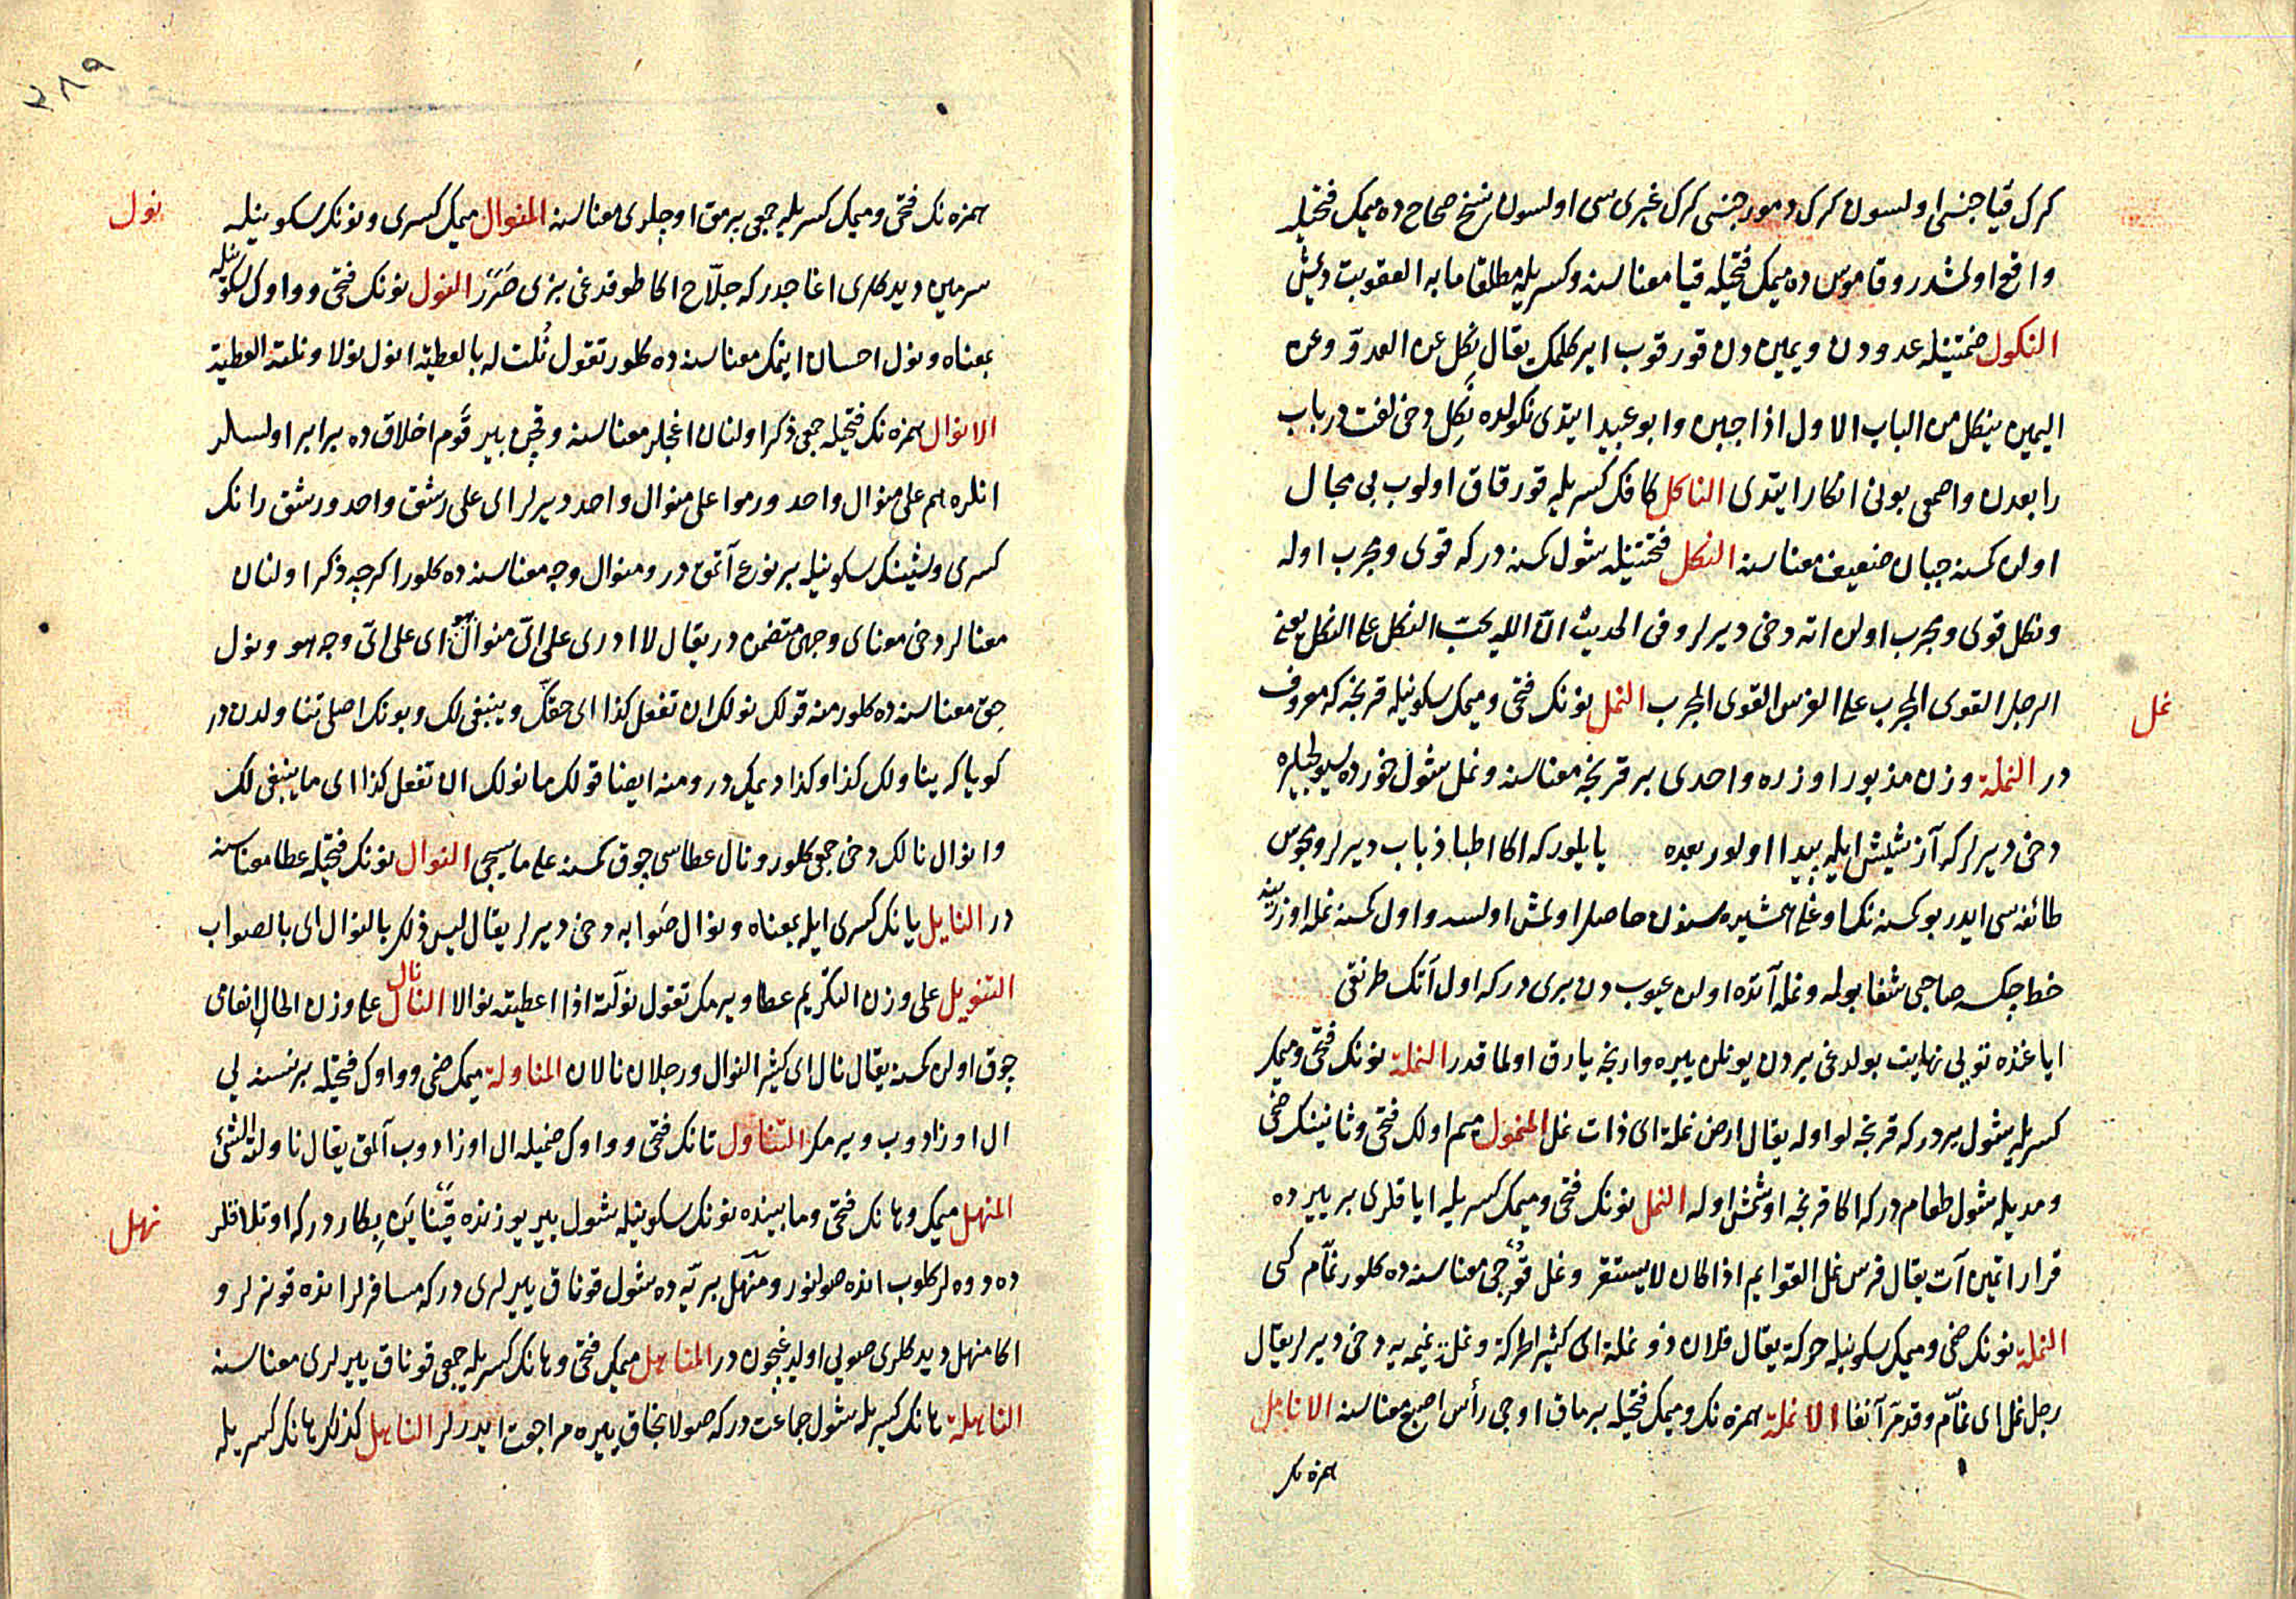 كرك قيا جنسى اولسون كرك دمور جنسى كرك غيرى سى اولسون نسخ صحاح ده ميمك فتحيله
واقع اولمشدر و قاموس ده ميمك فتحيله قيا معناسنه و كسريله مطلقا ما به العقوبت ديمش
النكول ضمتينله عدودن و يميندن قورقوب ايركلمك يقال نكل عن العدوّ وعن
اليمين ينكل من الباب الاول اذا جبن وابو عبيد ايتدى نكولده نَكِل دخى لغت در باب
رابعدن واصمعى بونى انكار ايتدى الناكل كافك كسريله قورقاق اولوب بى مجال
اولن كمسنه جبان ضعيف معناسنه النكل فتحتينله شول كمسنه دركه قوى و مجرب اوله
ونكل قوى و مجرب اولن اته دخى ديرلر وفى الحديث انّ الله يحبّ النكل على النكل يعنى
الرجل القوى المجرب على الفرس القوى المجرب النمل نونك فتحى و ميمك سكونيله قرنجه كه معروف
نمل
در النملة وزن مذبور اوزره واحدى بر قرنجه معناسنه و نمل شول خورده سيولجيلره
دخى ديرلر كه آز شيش ايله پيدا اولور بعده يايلور كه اكا اطبا ذباب ديرلر و مجوس
طائفه سى ايدر بو كمسنه نك اوغلى همشيره سندن حاصل اولمش اولسه واول كمسنه نمله اوزرينه
خط چكسه صاحبى شفا بوله و نمله آتده اولن عيوب دن برى دركه اول آتك طرنقى
اياغنده توبى نهايت بولدغى يردن يونلن ييره وارنجه يارق اولماقدر النملة نونك فتحى و ميمك
كسريله شول يردر كه قرنجه لو اوله يقال ارض نملة اى ذات نمل المنمول ميم اولك فتحى و ثانينك ضمى
و مديله شول طعام در كه اكا قرنجه اوشمش اوله النمل نونك فتحى و ميمك كسريله اياقلرى بر ييرده
قرار اتمين آت يقال فرس نمل القوايم اذا كان لا يستقر و نمل قوجى معناسنده كلور نمّام كبى
النملة نونك ضمى و ميمك سكونيله حركة يقال فلان ذو نملة اى كثير الحركة و نملة نميمه يه دخى ديرلر يقال
رجل نمل اى نمّام وقد مرّ آنفا الانملة همزه نك و ميمك فتحيله برماق اوجى رأس اصبع معناسنه الانامل
همزه نك
٣٨٩
همزه نك فتحى و ميمك كسريله جمعى برمق اوجلرى معناسنه المنوال ميمك كسرى و نونك سكونيله
نول
سرمين ديدكلرى اغاجدر كه جلّاح اكا طوقدغى بزى صَرَر النول نونك فتحى و واوك سكونيله
بمعناه و نول احسان ايتمك معناسنه ده كلور تقول نُلت له بالعطية انول نولا ونلته العطية
الانوال همزه نك فتحيله جمعى ذكر اولنان اغجلر معناسنه و قچن بير قَوم اخلاق ده برابر اولسالر
انلره هم على منوال واحد ورموا على منوال واحد ديرلر اى على رشق واحد و رشق رانك
كسرى و شينك سكونيله بر نوع آتمق در و منوال وجه معناسنه ده كلور اكرچه ذكر اولنان
معنالر دخى معناى وجهى متضمن در يقال لا ادرى على اىّ منوال هو اى على اىّ وجه هو ونول
حق معناسنه ده كلور منه قولك نولك ان تفعل كذا اى حقّك و ينبغى لك و بونك اصلى تناولدن در
كويا كه يناولك كذا وكذا ديمكدر و منه ايضا قولك ما نولك ان تفعل كذا اى ما ينبغى لك
وانوال نالك دخى جمعى كلور و نال عطاسى چوق كمسنه على ما سيجى النوال نونك فتحيله عطا معناسنه
در النايل يانك كسرى ايله بمعناه ونوال صَوابه دخى ديرلر يقال ليس ذلك بالنوال اى بالصواب
التنويل على وزن التكريم عطا ويرمك تقول نولّته اذا اعطيته نوالا النال على وزن الحال انعامى
نال
چوق اولن كمسنه يقال نال اى كثير النوال ورجلان نالان المناولة ميمك ضمى و واوك فتحيله بر نسنه يى
ال اوزادوب ويرمك التناول تانك فتحى و واوك ضميله ال اوزادوب آلمق يقال ناولته الشئ
المنهل ميمك و هانك فتحى و مابينده نونك سكونيله شول ييريوزنده قَينايَن بِكاردر كه اوتلاقلر
نهل
ده دوه لر كلوب انده صولنور و منهل بريّه ده شول قوناق ييرلرى در كه مسافرلر انده قونرلر و
اكا منهل ديدكلرى صولى اولدغيچون در المناهل ميمك فتحى و هانك كسريله جمعى قوناق ييرلرى معناسنه
الناهلة هانك كسريله شول جماعت در كه صولانجاق ييره مراجعت ايدرلر الناهل كذلك هانك كسريله